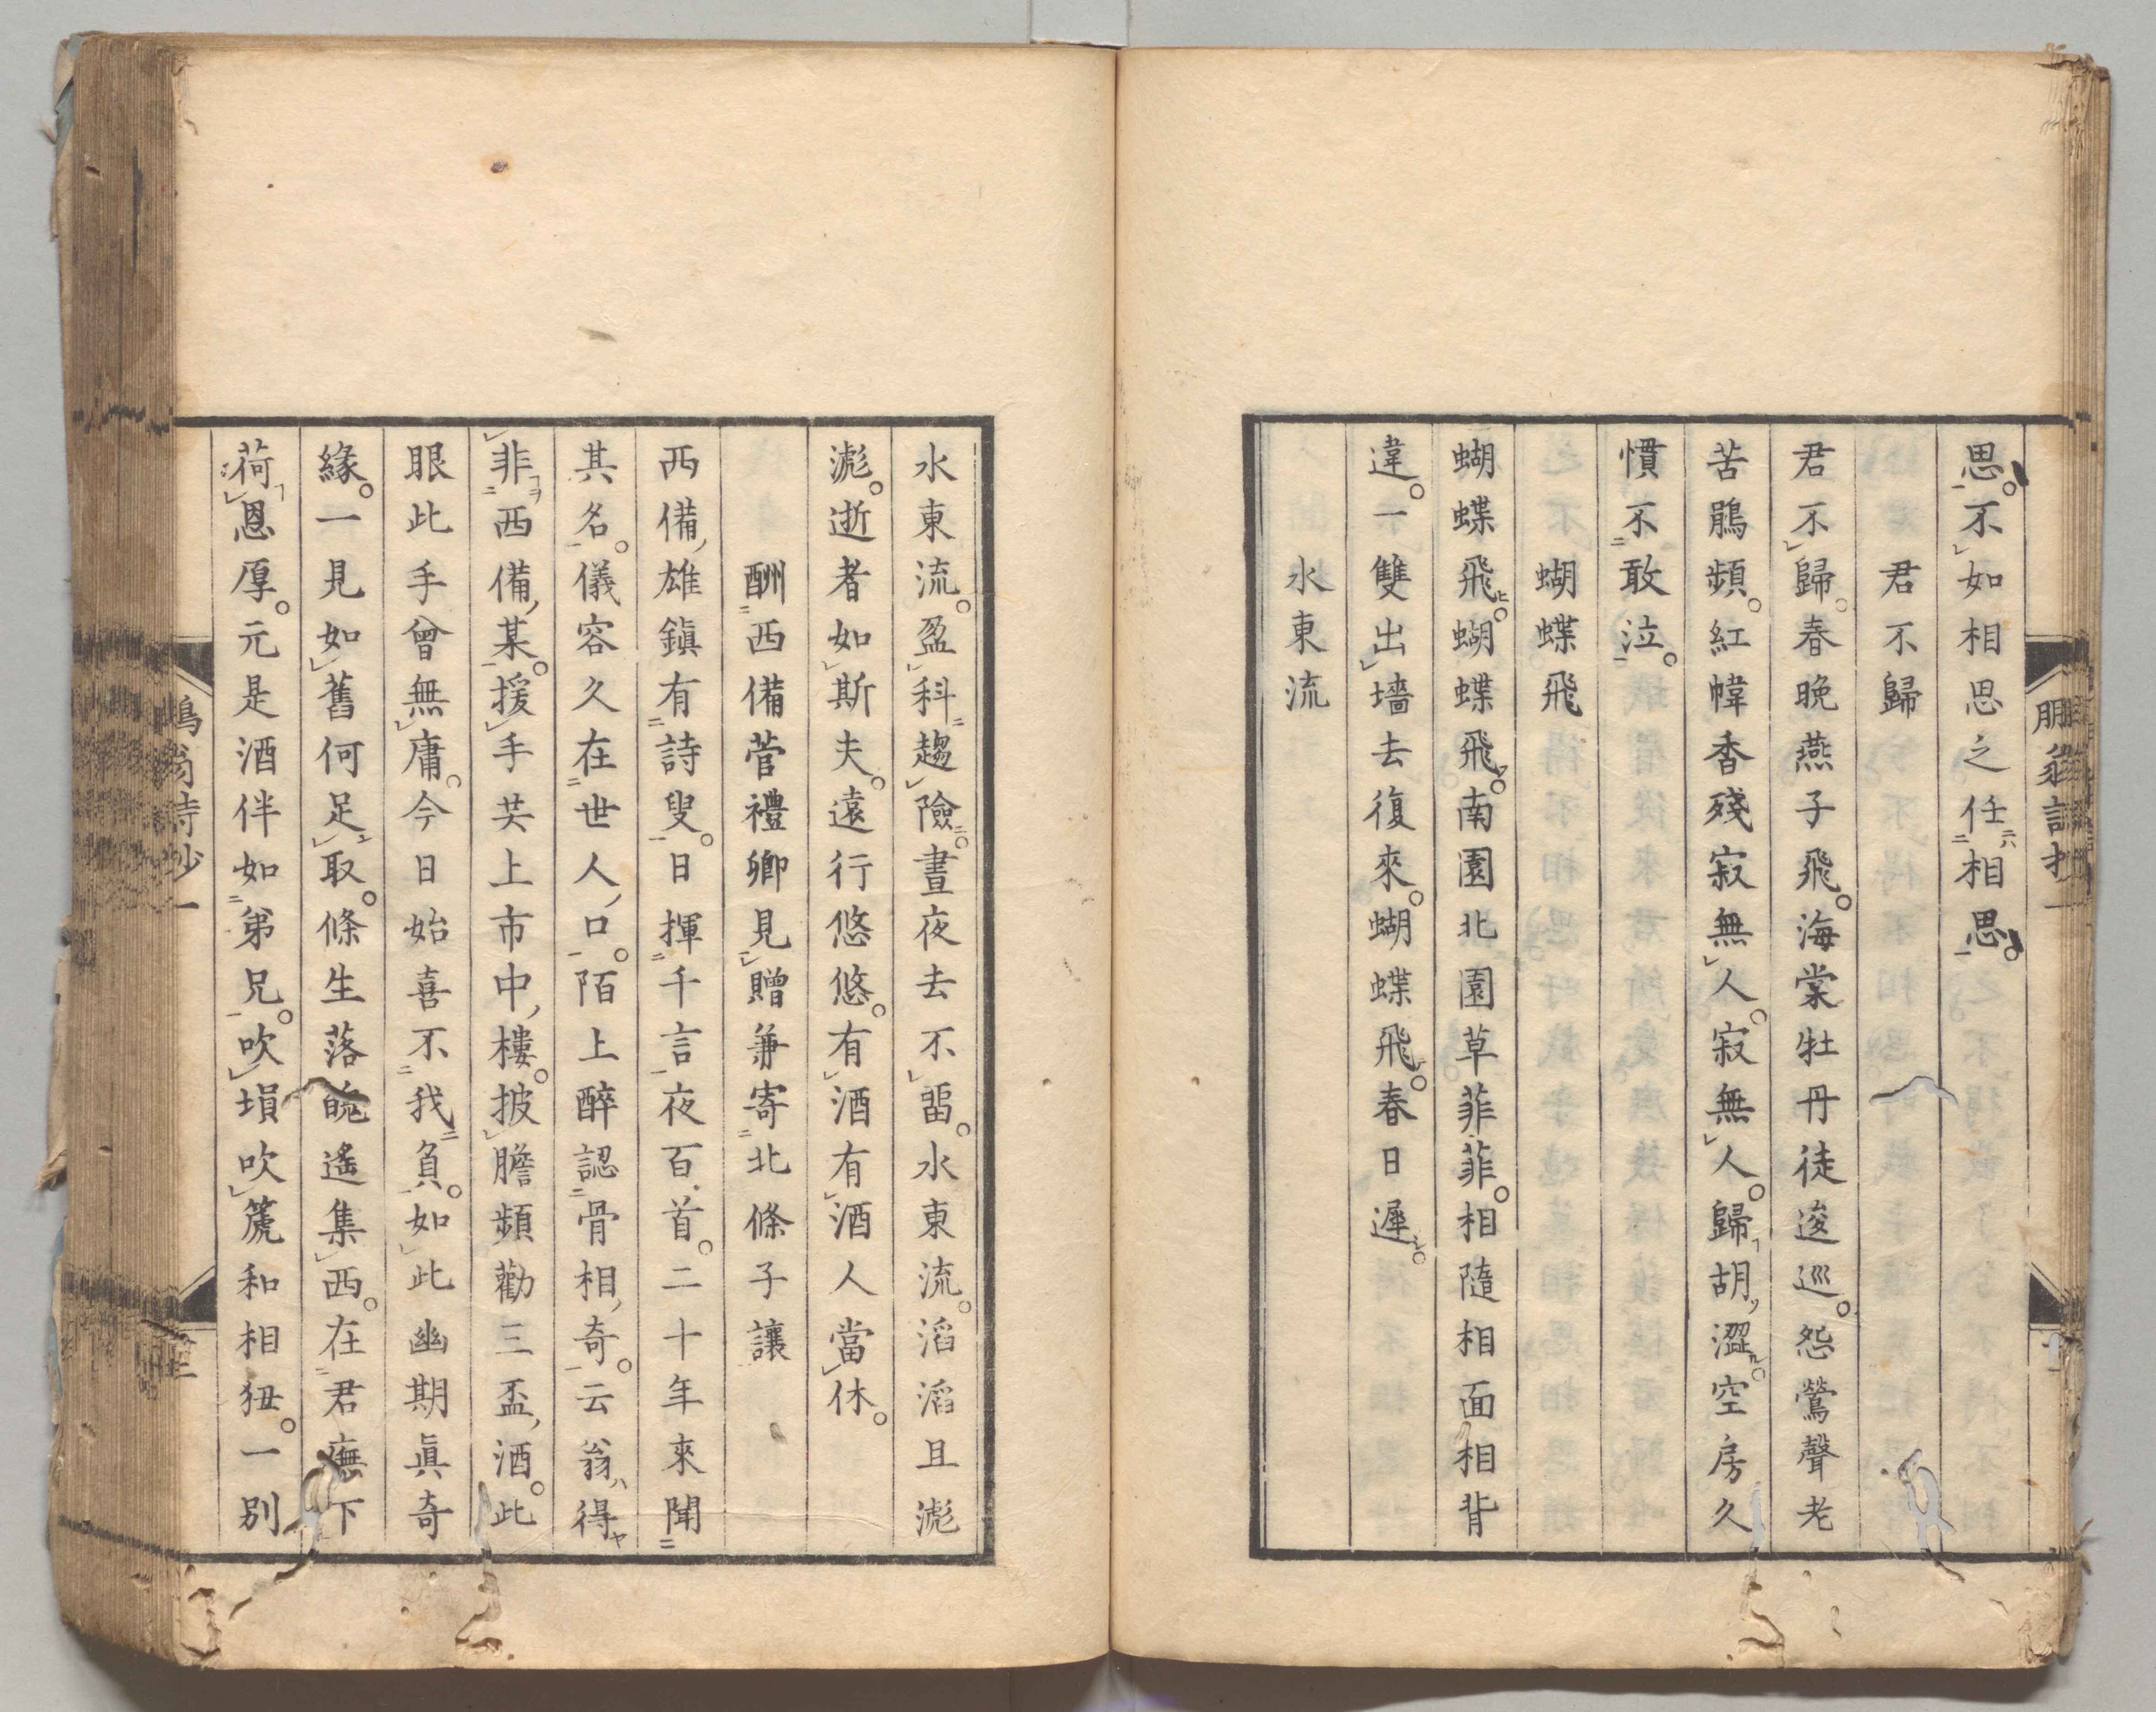 思。不如相思之任相思。
君不歸
君不歸。春晚燕子飛。海棠牡丹徒逡巡。怨鶯聲老
苦鵑頻。紅幃香殘寂無人。寂無人。歸胡澀。空房久
慣不敢泣。
蝴蝶飛
蝴蝶飛。蝴蝶飛。南園北園草菲菲。相隨相面相背
違。一雙出墻去復來。蝴蝶飛。春日遲。
水東流
水東流。盈科趨險。晝夜去不畱。水東流。滔滔且滮
滮。逝者如斯夫。遠行悠悠。有酒有酒人當休。
酬西備菅禮卿見贈兼寄北條子讓
西備雄鎮有詩叟。日揮千言夜百首。二十年來聞
其名。儀容久在世人口。陌上醉認骨相奇。云翁得
非西備某。援手共上市中樓。披膽頻勸三盃酒。此
眼此手曾無庸。今日始喜不我負。如此幽期眞奇
緣。一見如舊何足取。條生落魄遙集西。在君廡下
荷恩厚。元是酒伴如弟兄。吹塤吹篪和相狃。一別
鵬翁詩抄一